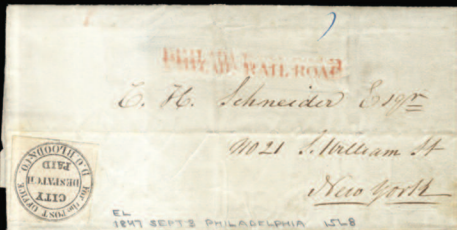 PHILADA RAIL ROAD
C. H. Schneider Esqr
No 21 S. William St
New York
D.O. BLOOD & CO
CITY
DESPATCH
PAID
For the POST OFFICE
EL
1847 SEPT 3 PHILADELPHIA 15L8